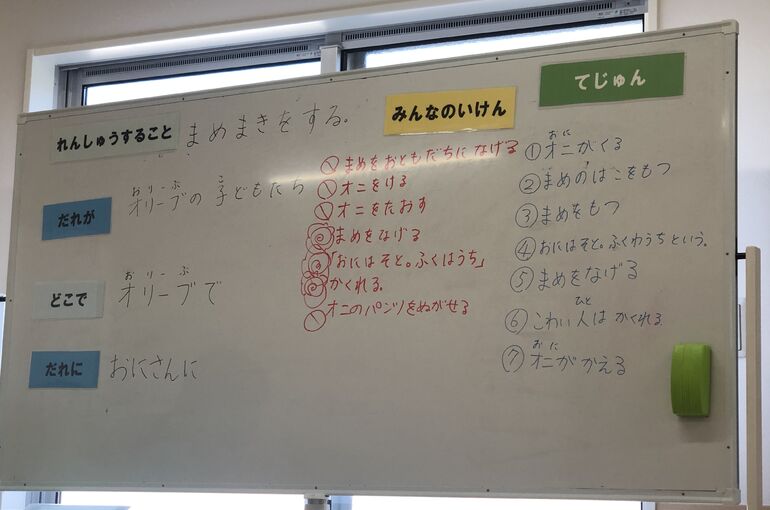 れんしゅうすること まめまきをする。
だれが オリーブの子どもたち
おりーぶ こ
どこで オリーブで
おりーぶ
だれに おにさんに
みんなのいけん
まめをおともだちになげる
オニをける
オニをたおす
まめをなげる
「おにはそと。ふくはうち」
かくれる。
オニのパンツをぬがせる
てじゅん
おに
①オニがくる
②まめのはこをもつ
③まめをもつ
④おにはそと。ふくわうちという。
⑤まめをなげる
ひと
⑥こわい人はかくれる。
おに
⑦オニがかえる